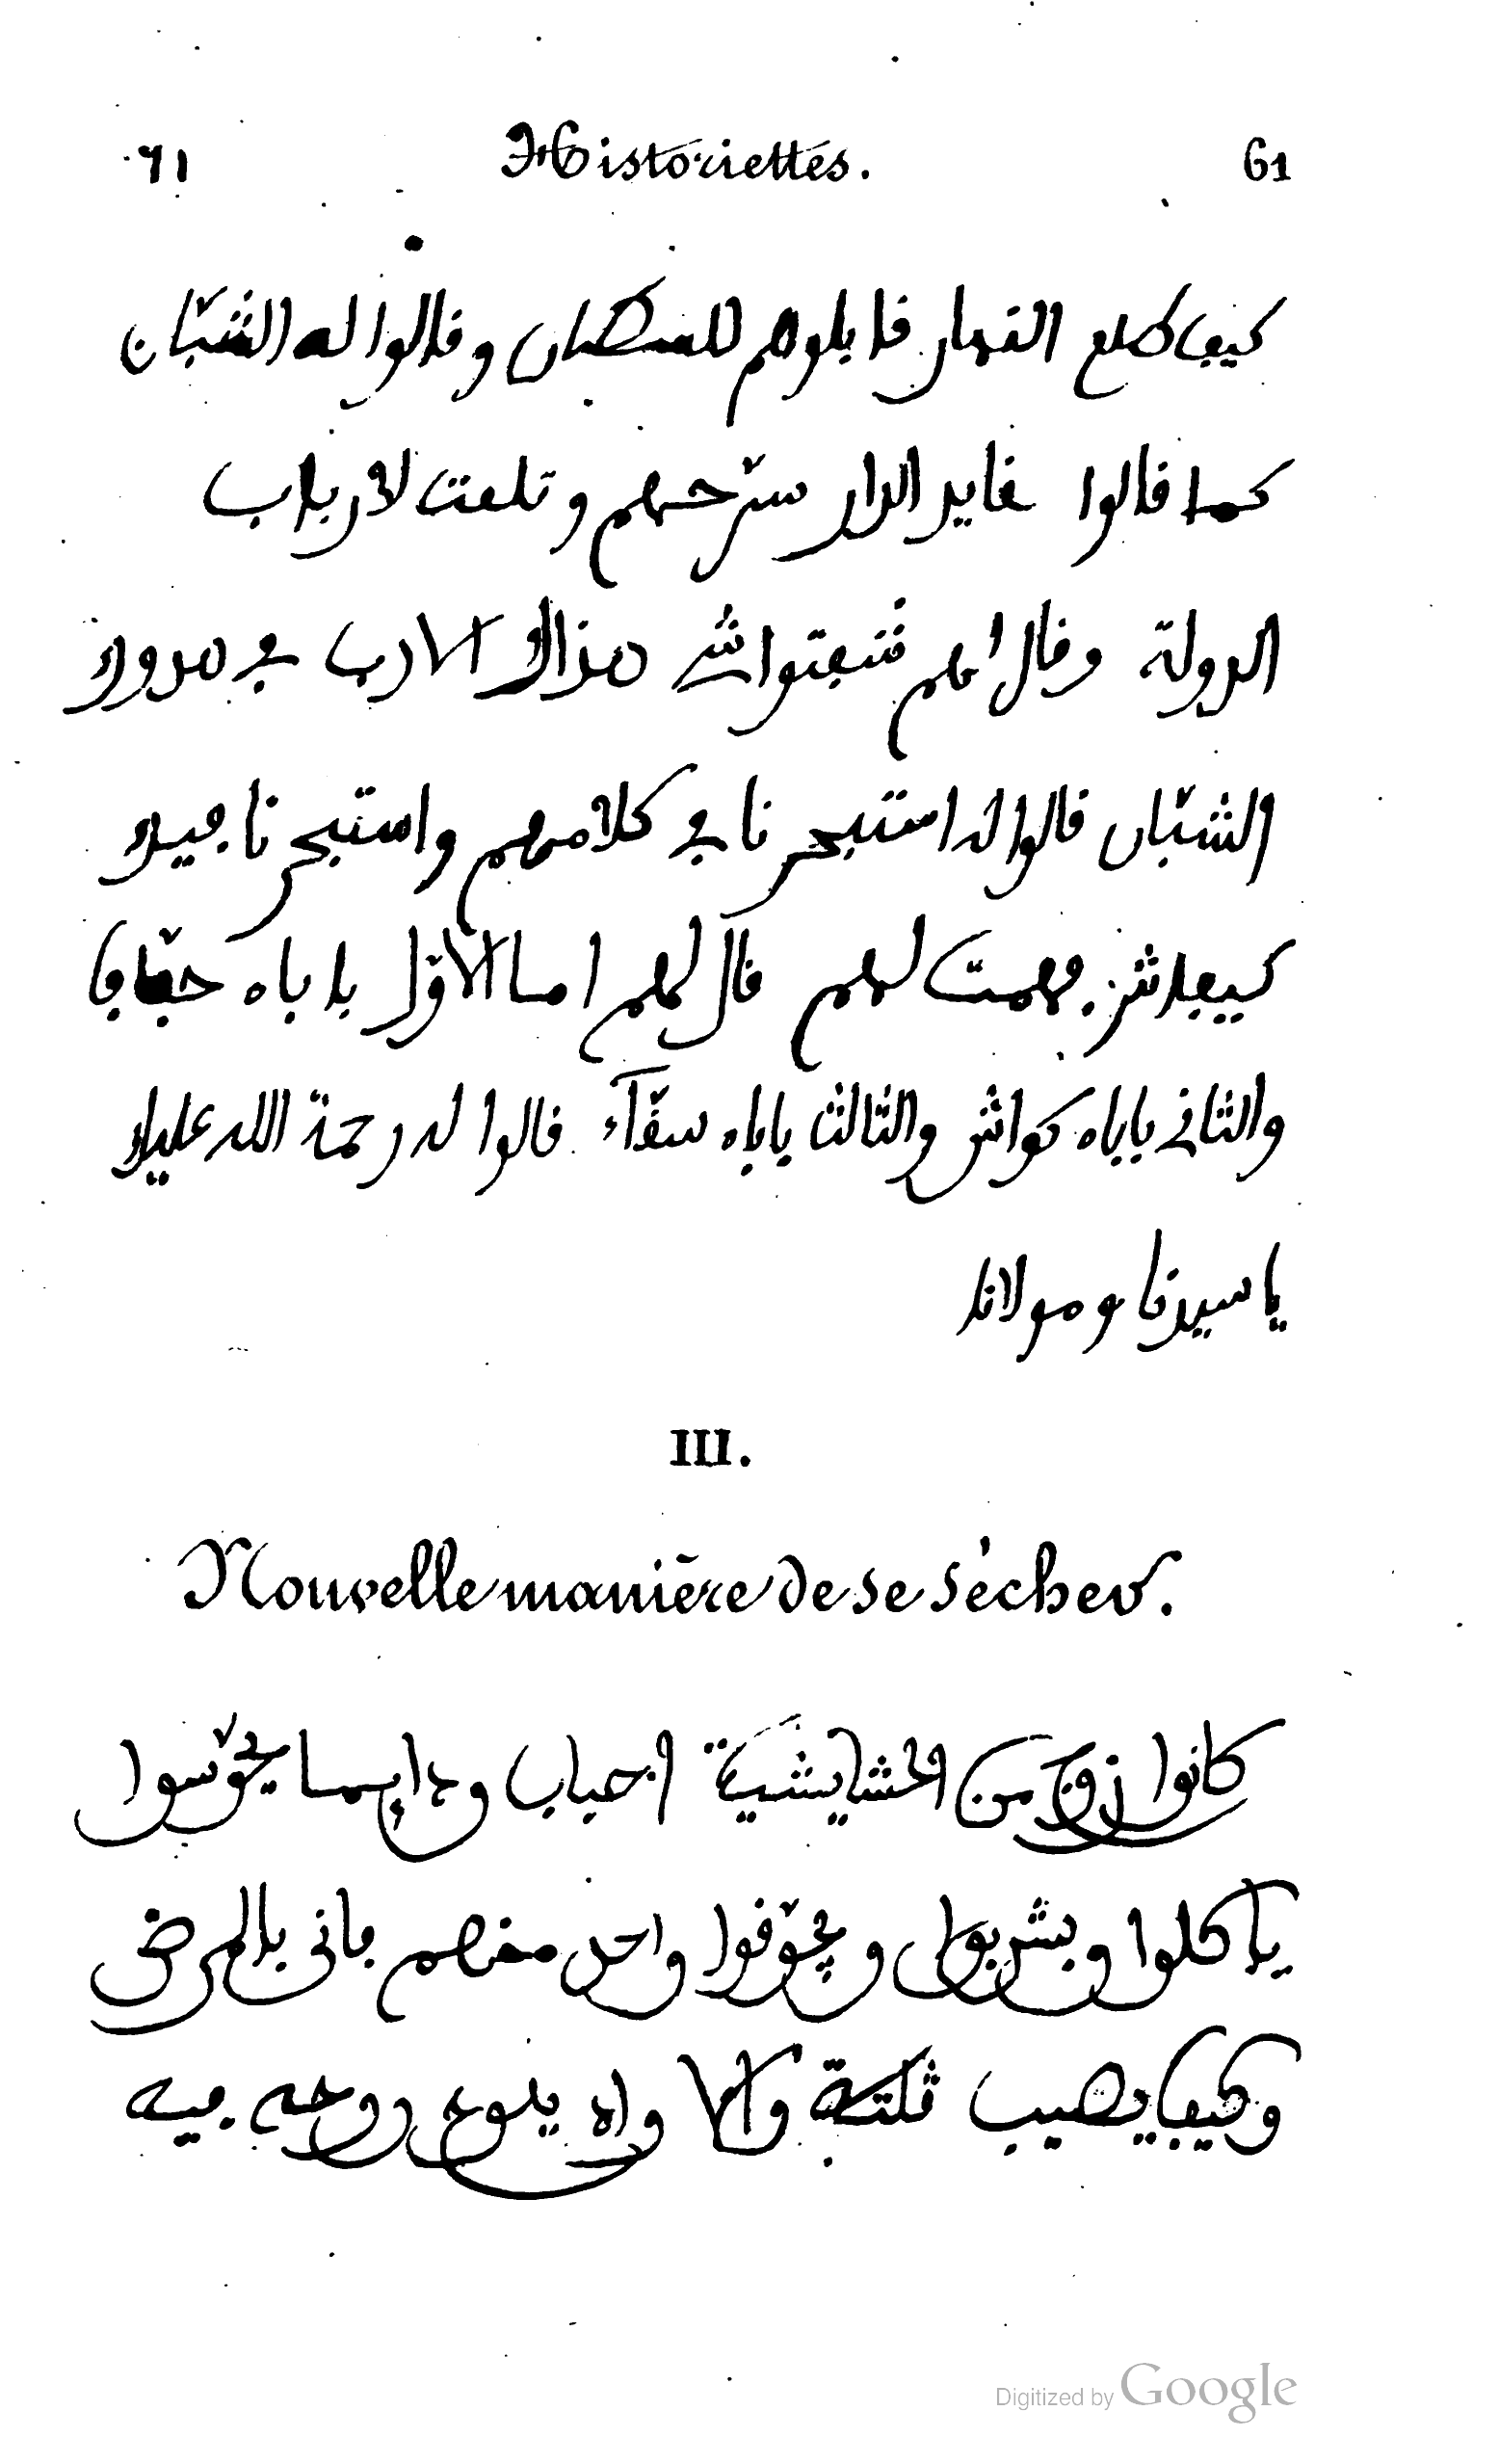 ٦١ Historiettes. 61
كيف طلع النهار فابلوهم للسلطان وفالوا له الشبّان
كما فالوا فايد الدار سرّحهم وتلعت لارباب
الدولة وفال لهم شعتواش هذاك الادب في هدوك
الشبّان فالوا له استبحرنا في كلامهم واستبحرنا فيك
كيفاش فهمت لهم فال لهم اما الاوّل باباه حفّاف
والثاني باباه كواش والثالث باباه سفّآء فالوا له رحمة الله عليك
يا سيدنا ومولانا
III.
Nouvelle manière de se sécher.
كانوا زوج من الحشايشيّة احباب ودايما يحوّسوا
ياكلوا ويشربوا و واحد منهم فاني بالمرض
وكيف يصيب ڤلتة والا واد يلوح روحه فيه
Digitized by Google